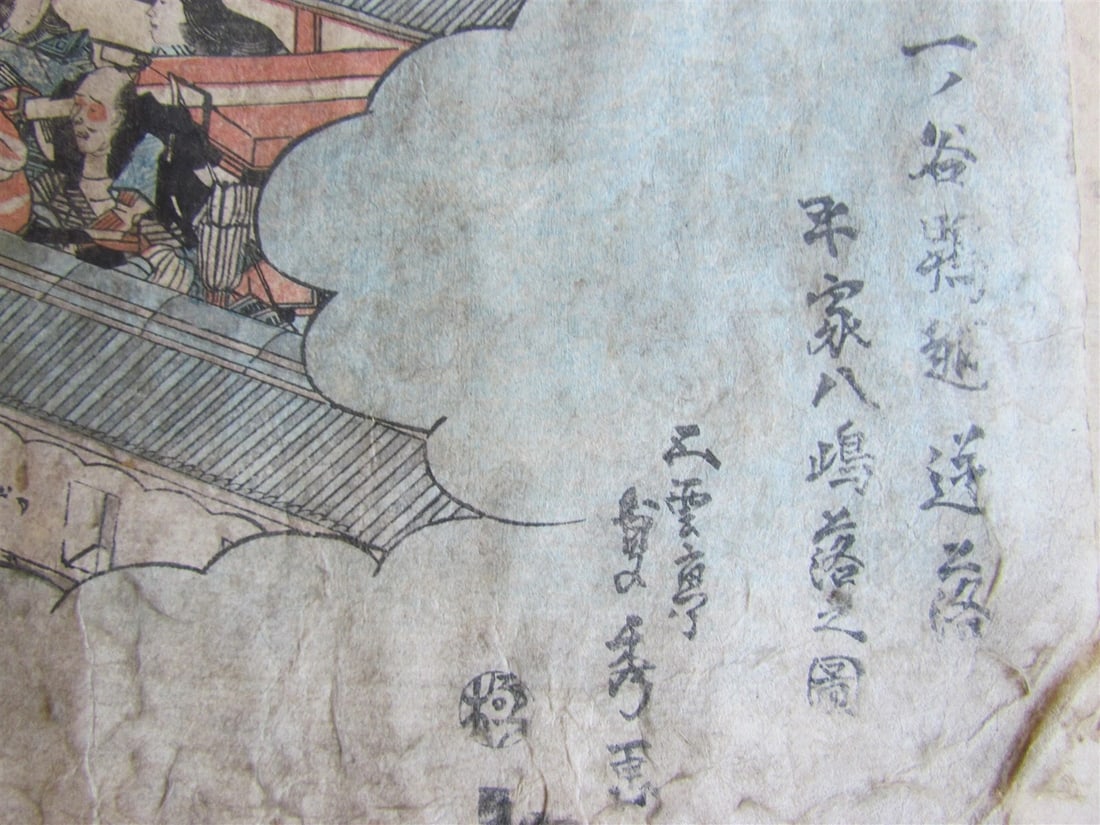 一ノ谷鵯越逆落
平家八嶋落之図
三雲亭
貞秀画
極